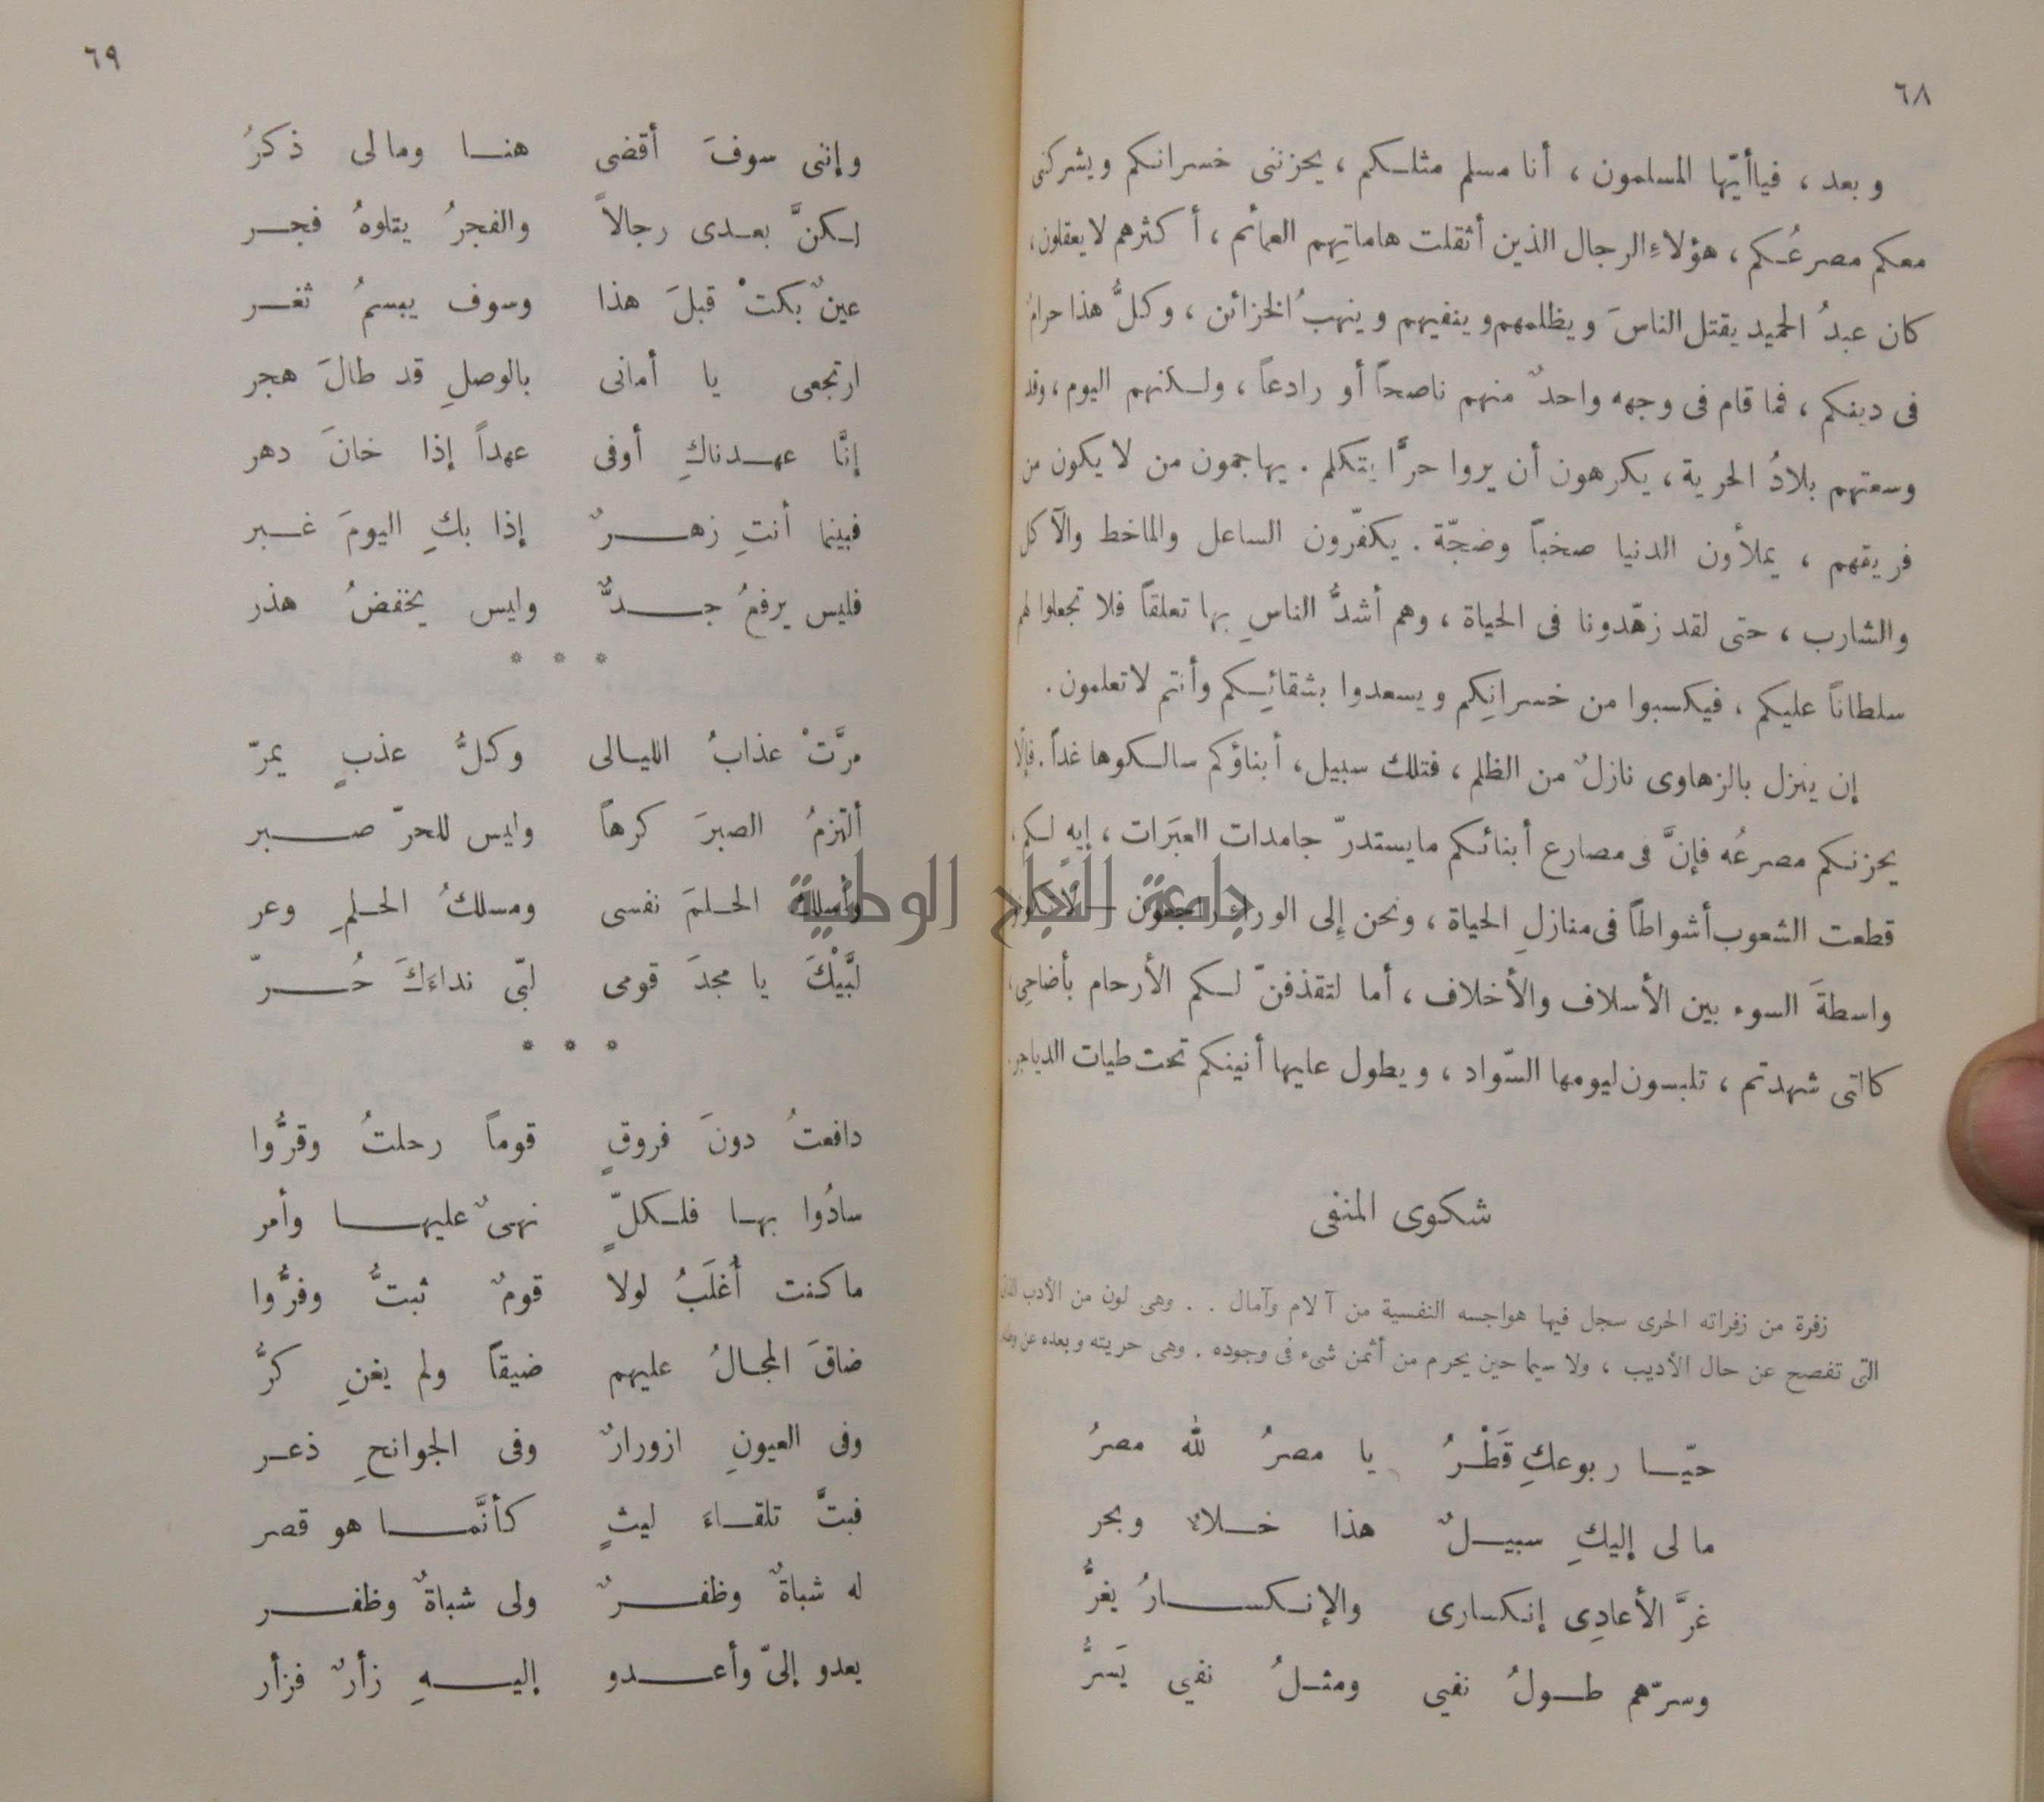 ٦٨
وبعد ، فياأيّها المسلمون ، أنا مسلم مثلكم ، يحزننى خسرانكم ويشركنى
معكم مصرعُكم ، هؤلاءِ الرجال الذين أثقلت هاماتِهم العمائم ، أكثرهم لا يعقلون ،
كان عبدُ الحميد يقتل الناسَ ويظلمهم وينفيهم وينهبُ الخزائن ، وكلُّ هذا حرامٌ
فى دينكم ، فما قام فى وجهه واحدٌ منهم ناصحاً أو رادعاً ، ولكنهم اليوم ، وقد
وسعتهم بلادُ الحرية ، يكرهون أن يروا حرًّا يتكلم . يهاجمون من لا يكون من
فريقهم ، يملأون الدنيا صخباً وضجّة . يكفّرون الساعل والماخط والآكل
والشارب ، حتى لقد زهّدونا فى الحياة ، وهم أشدُّ الناسِ بها تعلقاً فلا تجعلوا لهم
سلطاناً عليكم ، فيكسبوا من خسرانِكم ويسعدوا بشقائِكم وأنتم لا تعلمون .
إن ينزل بالزهاوى نازلٌ من الظلم ، فتلك سبيل ، أبناؤكم سالكوها غداً . فإلّا
يحزنكم مصرعُه فإنَّ فى مصارع أبنائكم مايستدرّ جامدات العبَرات ، إيه لكم .
قطعت الشعوب أشواطاً فى منازلِ الحياة ، ونحن إلى الوراءِ راجعون
واسطةَ السوء بين الأسلاف والأخلاف ، أما لتقذفنّ لكم الأرحام بأضاحى ،
كالتى شهدتم ، تلبسون ليومها السّواد ، ويطول عليها أنينكم تحت طيات الدياجر .
شكوى المنفى
زفرة من زفراته الحرى سجل فيها هواجسه النفسية من آلام وآمال . . وهى لون من الأدب
التى تفصح عن حال الأديب ، ولا سيما حين يحرم من أثمن شىء فى وجوده . وهى حريته وبعده عن
حيّا ربوعكِ قَطْرُ يا مصرُ لله مصرُ
ما لى إليكِ سبيلٌ هذا خلاءٌ وبحر
غرَّ الأعادِى إنكسارى والإنكسارُ يغرُّ
وسرّهم طولُ نفيى ومثلُ نفيى يَسرُّ
٦٩
وإننى سوفَ أقضى هنا ومالى ذكرُ
لكنَّ بعدى رجالاً والفجرُ يتلوهُ فجر
عينٌ بكتْ قبلَ هذا وسوف يبسمُ ثغر
ارتجعى يا أمانى بالوصلِ قد طالَ هجر
إنَّا عهدناكِ أوفى عهداً إذا خانَ دهر
فبينما أنتِ زهرٌ إذا بكِ اليومَ غبر
فليس يرفعُ جدٌّ وليس يخفضُ هذر
* * *
مرَّتْ عذابُ الليالى وكلُّ عذبٍ يمرّ
ألتزمُ الصبرَ كرهاً وليس للحرّ صبر
وأسلكُ الحلمَ نفسى ومسلكُ الحلمِ وعر
لبَّيْكَ يا مجدَ قومى لبّى نداءَكَ حُرّ
* * *
دافعتُ دونَ فروقٍ قوماً رحلتُ وقرُّوا
سادُوا بها فلكلٍّ نهىٌ عليها وأمر
ما كنت أُغلَبُ لولا قومٌ ثبتُّ وفرُّوا
ضاقَ المجالُ عليهم ضيقاً ولم يغنِ كرُّ
وفى العيونِ ازورارٌ وفى الجوانحِ ذعر
فبتَّ تلقاءَ ليثٍ كأنَّما هو قصر
له شباةٌ وظفرٌ ولى شباةٌ وظفر
يعدو إلىّ وأعدو إليهِ زأرٌ فزأر
جامعة النجاح الوطنية